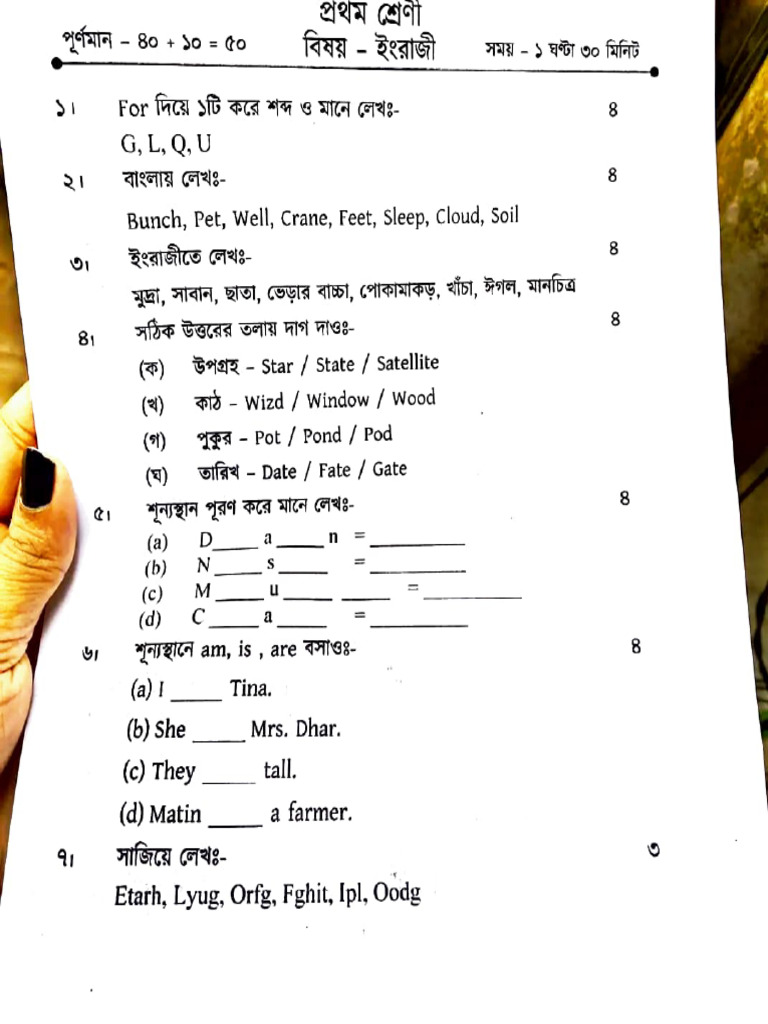 প্রথম শ্রেণী
পূর্ণমান – ৪০ + ১০ = ৫০ বিষয় – ইংরাজী সময় – ১ ঘণ্টা ৩০ মিনিট
১। For দিয়ে ১টি করে শব্দ ও মানে লেখঃ- ৪
G, L, Q, U
২। বাংলায় লেখঃ- ৪
Bunch, Pet, Well, Crane, Feet, Sleep, Cloud, Soil
৩। ইংরাজীতে লেখঃ- ৪
মুদ্রা, সাবান, ছাতা, ভেড়ার বাচ্চা, পোকামাকড়, খাঁচা, ঈগল, মানচিত্র
৪। সঠিক উত্তরের তলায় দাগ দাওঃ- ৪
(ক) উপগ্রহ – Star / State / Satellite
(খ) কাঠ – Wizd / Window / Wood
(গ) পুকুর – Pot / Pond / Pod
(ঘ) তারিখ – Date / Fate / Gate
৫। শূন্যস্থান পূরণ করে মানে লেখঃ- ৪
(a) D____ a _____ n = __________
(b) N _____ s _____ = __________
(c) M _____ u _____ _____ = __________
(d) C _____ a _____ = __________
৬। শূন্যস্থানে am, is , are বসাওঃ- ৪
(a) I _____ Tina.
(b) She _____ Mrs. Dhar.
(c) They _____ tall.
(d) Matin _____ a farmer.
৭। সাজিয়ে লেখঃ- ৩
Etarh, Lyug, Orfg, Fghit, Ipl, Oodg